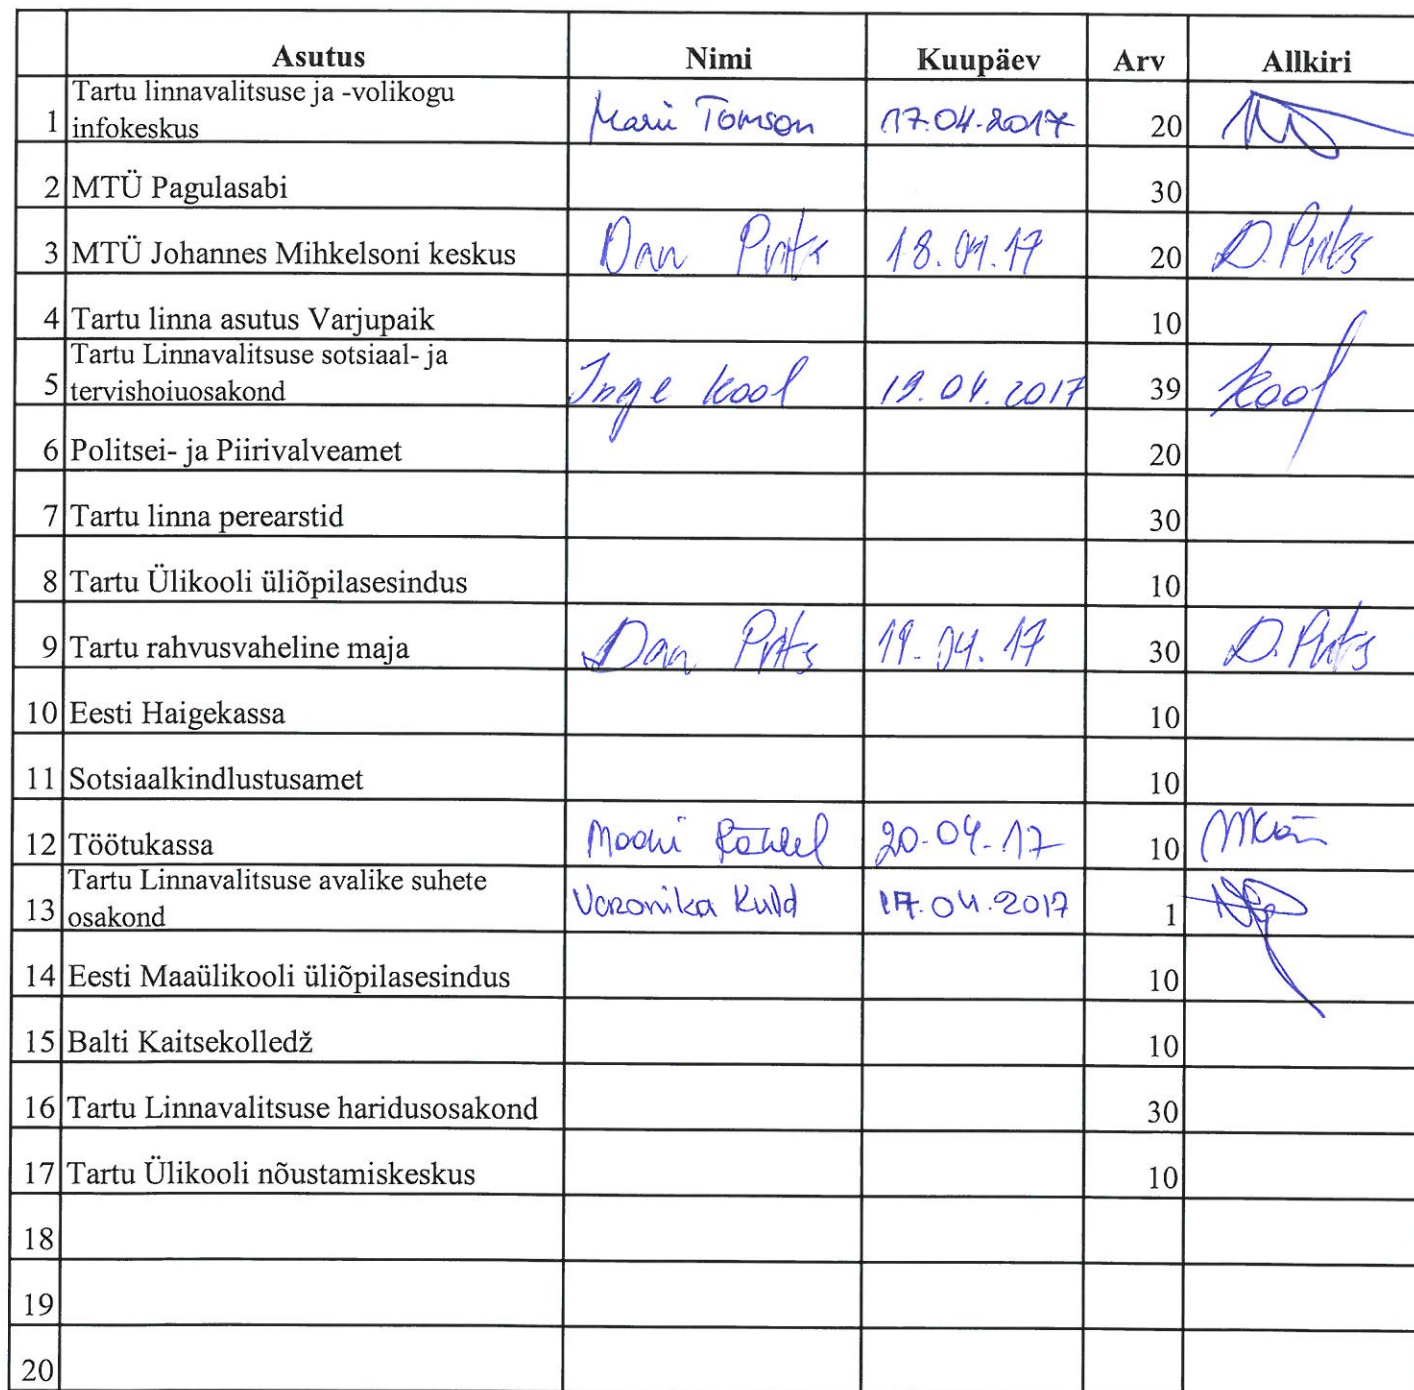 Asutus Nimi Kuupäev Arv Allkiri
Tartu linnavalitsuse ja -volikogu
1 infokeskus Marii Tomson 17.04.2017 20
2 MTÜ Pagulasabi 30
3 MTÜ Johannes Mihkelsoni keskus Dan Prits 18.04.17 20 D. Prits
4 Tartu linna asutus Varjupaik 10
Tartu Linnavalitsuse sotsiaal- ja
5 tervishoiuosakond Inge Kool 19.04.2017 39 Kool
6 Politsei- ja Piirivalveamet 20
7 Tartu linna perearstid 30
8 Tartu Ülikooli üliõpilasesindus 10
9 Tartu rahvusvaheline maja Dan Prits 19.04.17 30 D. Prits
10 Eesti Haigekassa 10
11 Sotsiaalkindlustusamet 10
12 Töötukassa 20.04.17 10
Tartu Linnavalitsuse avalike suhete
13 osakond Veronika Kuld 17.04.2017 1
14 Eesti Maaülikooli üliõpilasesindus 10
15 Balti Kaitsekolledž 10
16 Tartu Linnavalitsuse haridusosakond 30
17 Tartu Ülikooli nõustamiskeskus 10
18
19
20